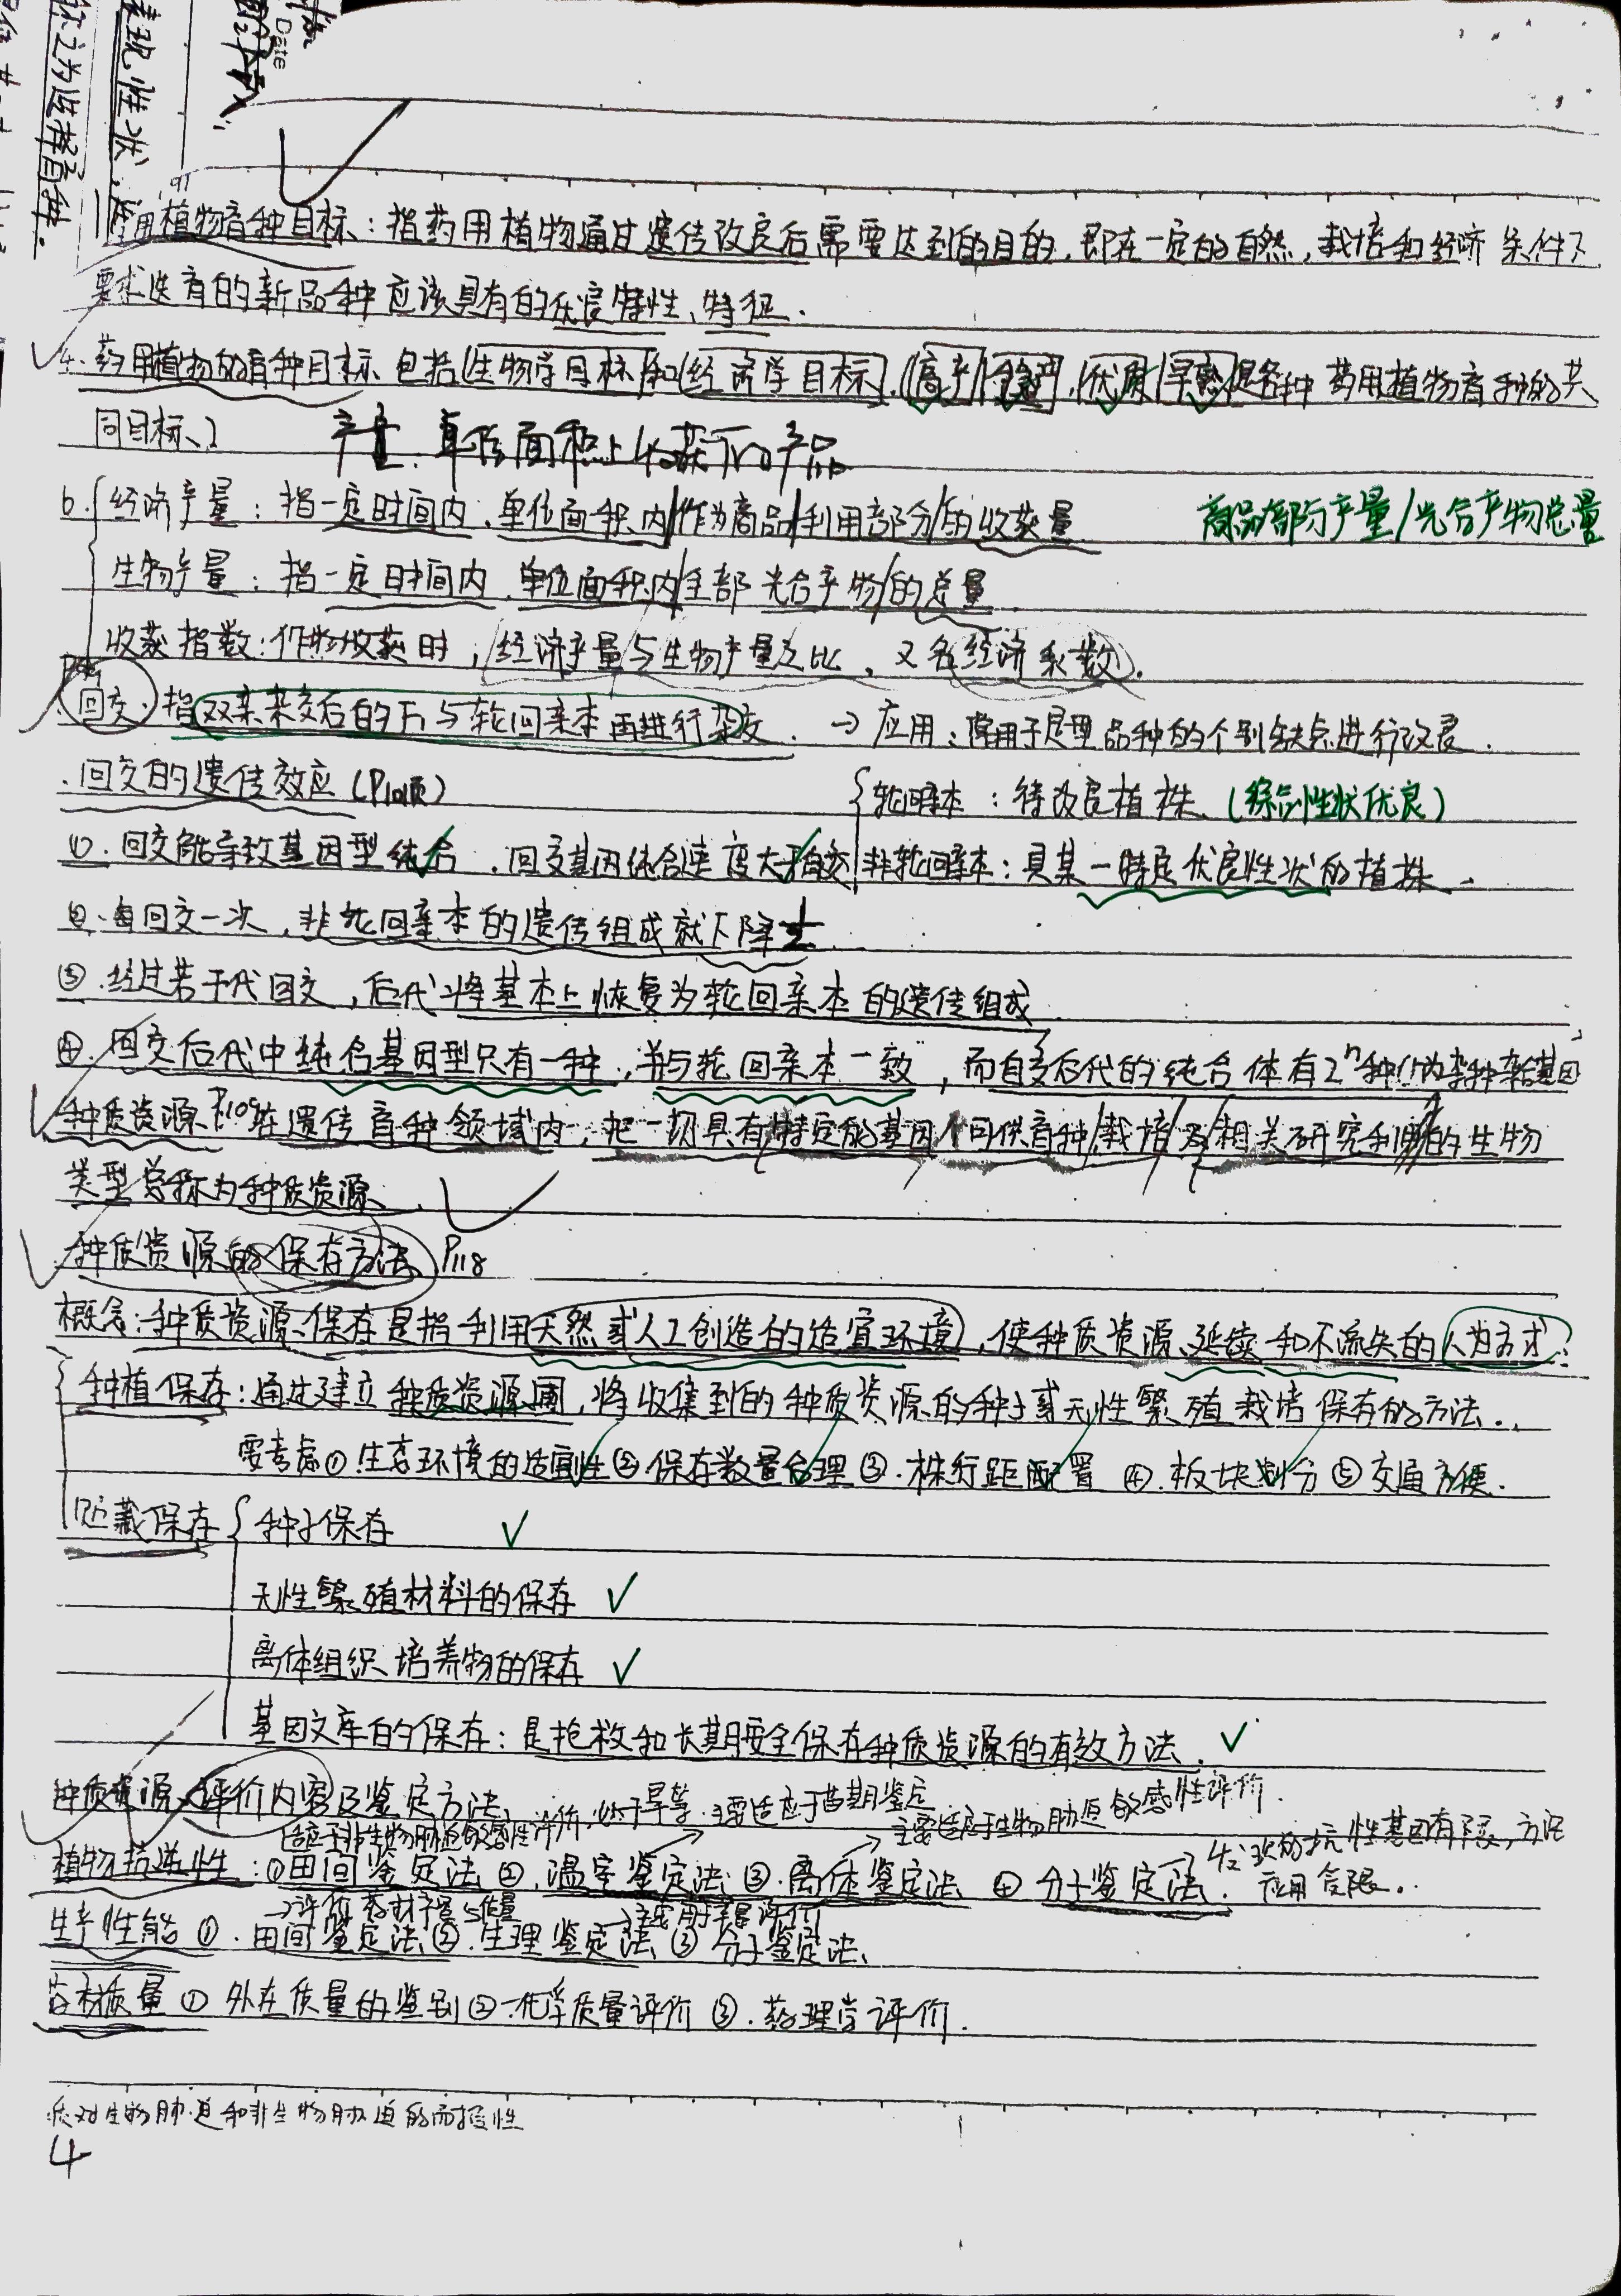 Date
表现性状
称之为选择育种.
药用植物育种目标：指药用植物通过遗传改良后需要达到的目的,即在一定的自然,栽培和经济条件下
要求选育的新品种应该具有的优良特性、特征.
药用植物的育种目标包括生物学目标和经济学目标.(高产 稳产,优质 早熟是各种药用植物育种的共
同目标.)
产量.单位面积上收获的产品
6.经济产量：指一定时间内.单位面积内/作为商品/利用部分/的收获量
商品部分产量/光合产物总量
生物产量：指一定时间内.单位面积内/全部光合产物/的总量
收获指数:作物收获时,经济产量与生物产量之比,又名经济系数.
回交.指双亲杂交后的F₁与轮回亲本再进行杂交.→应用：常用于定型品种的个别缺点进行改良.
.回交的遗传效应(P110页)
轮回亲本：待改良植株.(综合性状优良)
①.回交能导致基因型纯合.回交基因纯合速度大于自交
非轮回亲本：具某一特定优良性状的植株.
②.每回交一次,非轮回亲本的遗传组成就下降½
③.经过若干代回交,后代将基本上恢复为轮回亲本的遗传组成
④.回交后代中纯合基因型只有一种.,并与轮回亲本一致,而自交后代的纯合体有2ⁿ种(n为杂种杂合基因
种质资源P109在遗传育种领域内,把一切具有特定的基因、可供育种/栽培/及/相关研究利用的生物
类型总称为种质资源
种质资源的保存方法 P118
概念:种质资源保存是指利用天然或人工创造的适宜环境,使种质资源延续和不流失的人为方式:
种植保存：通过建立种质资源圃,将收集到的种质资源的种子或无性繁殖栽培保存的方法.
要考虑①生态环境的适宜性②保存数量合理③.株行距配置 ④.板块划分⑤交通方便.
贮藏保存 种子保存 ✓
无性繁殖材料的保存 ✓
离体组织培养物的保存 ✓
基因文库的保存：是抢救和长期安全保存种质资源的有效方法.✓
种质资源评价内容及鉴定方法.
适应于非生物胁迫的敏感性评价.如干旱等.主要适应于苗期鉴定
主要适应于生物胁迫敏感性评价.
植物抗逆性：①田间鉴定法②.温室鉴定法③.离体鉴定法 ④分子鉴定法.
→发现的抗性基因有限,方法
应用受限..
→评价药材产量与质量
→主要用于产量评价
生产性能①.田间鉴定法②.生理鉴定法③分子鉴定法.
药材质量①外在质量的鉴别②.化学质量评价③.药理学评价.
对生物胁迫和非生物胁迫的抵抗性
4